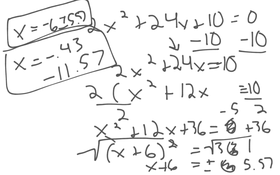 x = -6 ± 5.57
x = -.43
-11.57
2x² + 24x + 10 = 0
-10 -10
2x² + 24x = 10
2(x² + 12x = 10
2 2
-5
x² + 12x + 36 = +36
√(x + 6)² = √31
x + 6 = ± 5.57